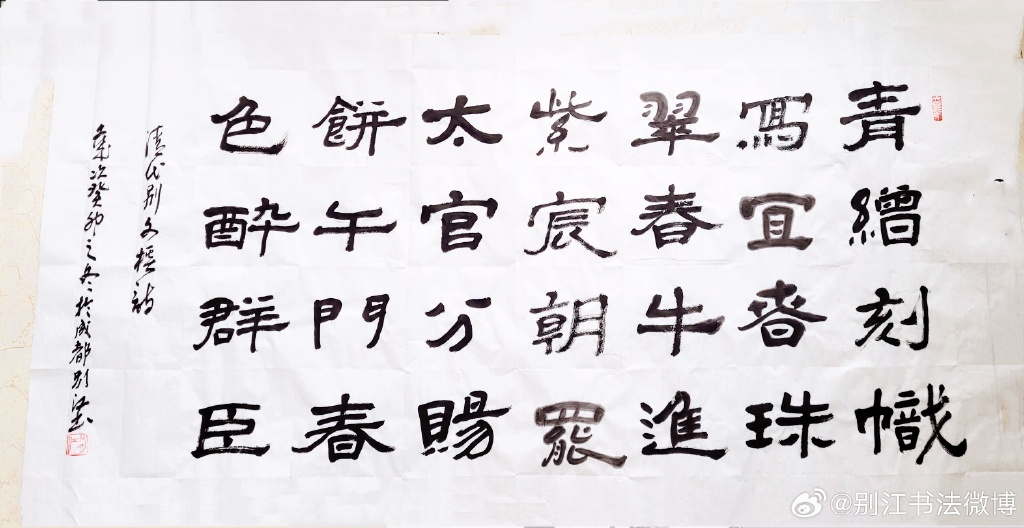 青繒刻幟
冩冝旾珠
翠春牛進
紫宸朝罷
太官分賜
餅午門春
色醉群臣
清代别文榳詩
歲次癸卯之冬於成都别江書
@别江书法微博